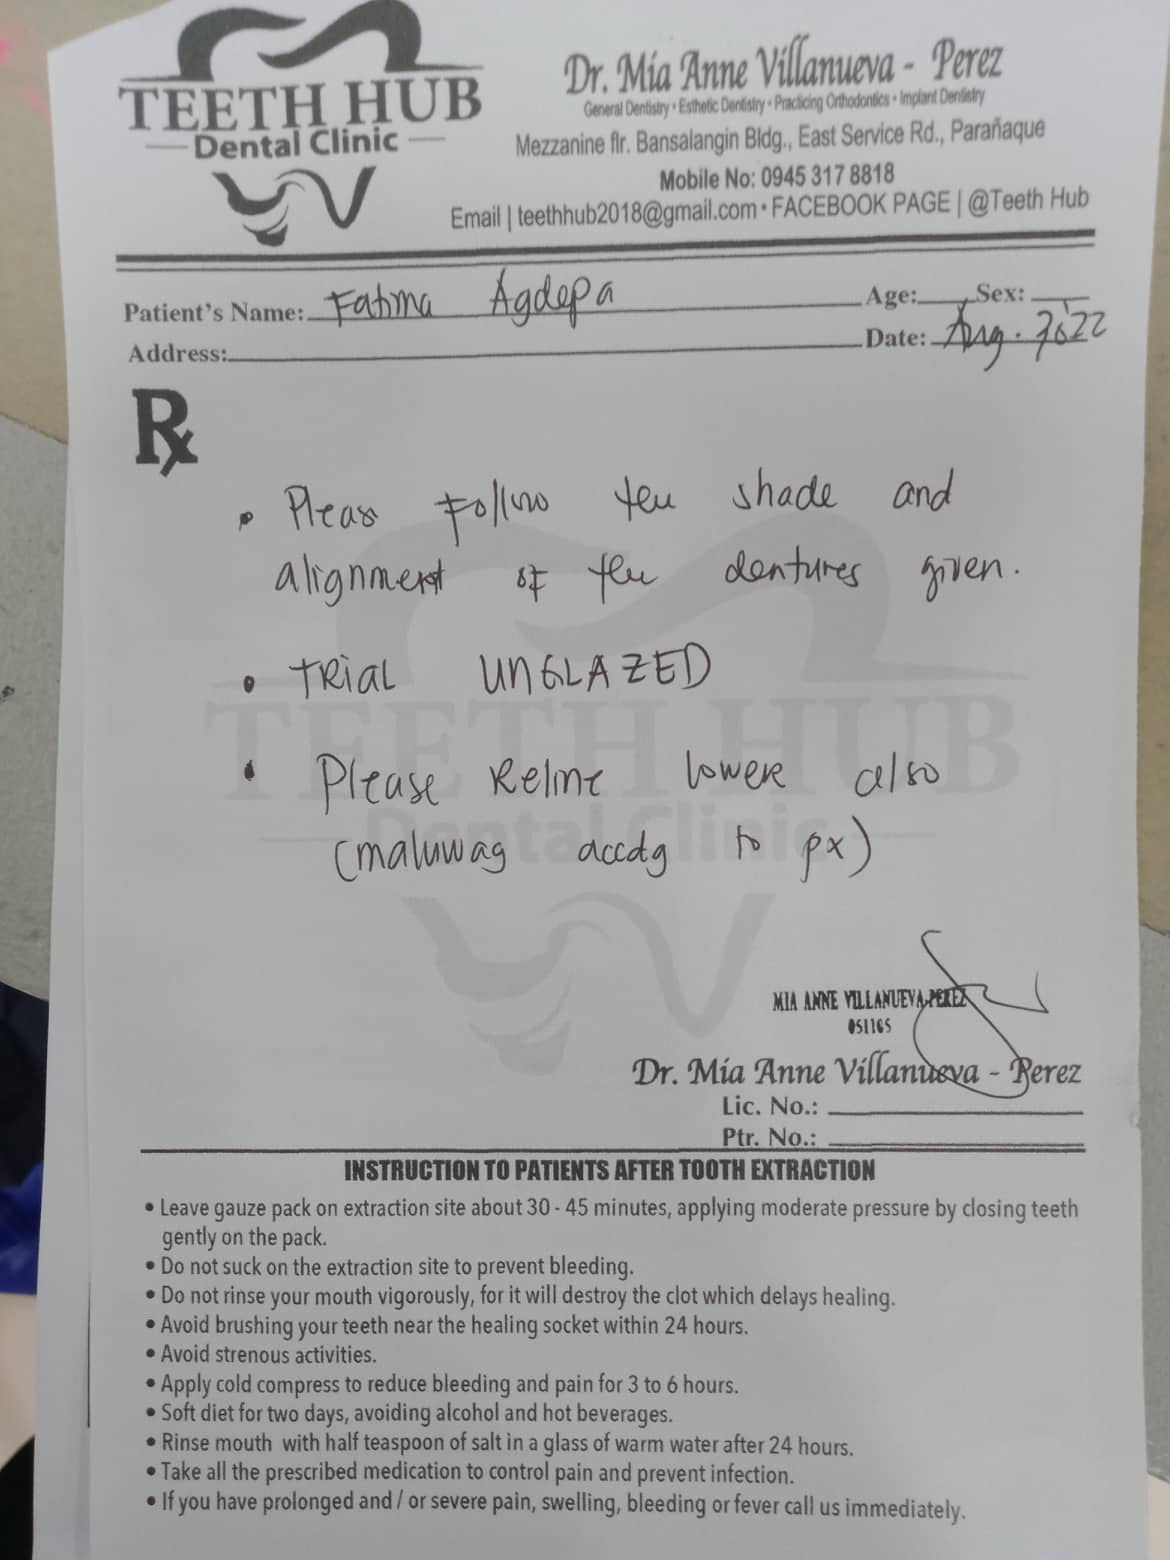 TEETH HUB
Dental Clinic
Dr. Mia Anne Villanueva - Perez
General Dentistry • Esthetic Dentistry • Practicing Orthodontics • Implant Dentistry
Mezzanine flr. Bansalangin Bldg., East Service Rd., Parañaque
Mobile No: 0945 317 8818
Email | teethhub2018@gmail.com • FACEBOOK PAGE | @Teeth Hub
Patient's Name: Fatima Agdepa Age: Sex:
Address: Date: Aug. 20'22
Rx
• Please follow the shade and
alignment of the dentures given.
• TRIAL UNGLAZED
• Please Reline lower also
(maluwag accdg to px)
TEETH HUB
Dental Clinic
MIA ANNE VILLANUEVA-PEREZ
051165
Dr. Mia Anne Villanueva - Perez
Lic. No.:
Ptr. No.:
INSTRUCTION TO PATIENTS AFTER TOOTH EXTRACTION
• Leave gauze pack on extraction site about 30 - 45 minutes, applying moderate pressure by closing teeth
gently on the pack.
• Do not suck on the extraction site to prevent bleeding.
• Do not rinse your mouth vigorously, for it will destroy the clot which delays healing.
• Avoid brushing your teeth near the healing socket within 24 hours.
• Avoid strenous activities.
• Apply cold compress to reduce bleeding and pain for 3 to 6 hours.
• Soft diet for two days, avoiding alcohol and hot beverages.
• Rinse mouth with half teaspoon of salt in a glass of warm water after 24 hours.
• Take all the prescribed medication to control pain and prevent infection.
• If you have prolonged and / or severe pain, swelling, bleeding or fever call us immediately.